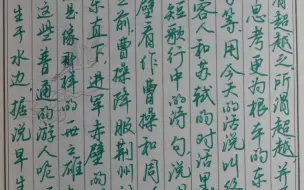 有超越之所谓超越并
思考更为根本的东
等，用今天的话说叫
客人和苏轼的对话里
短歌行中的诗句说
壁看作 曹操和周
之前，曹操降服荆州
东直下，进军赤壁的
是像那样的一世之雄
这些普通的游人呢
生于水边 据说早生